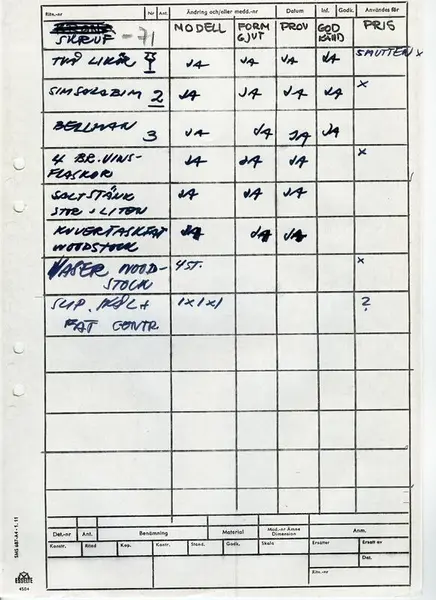 Ritn.-nr Nr Ant. Ändring och/eller medd.-nr Datum Inf. Godk. Användes för
SKRUF -71 MODELL FORM GJUT PROV GOD KÄND PRIS
TVÅ LIKÖR 1 JA JA JA JA SMUTTEN x
SIMSALABIM 2 JA JA JA JA x
BELLMAN 3 JA JA JA JA
4 BR.VINS- JA JA JA x
FLASKOR
SALTSTÄNK JA JA JA
STOR & LITEN
KUVERTASKFAT JA JA JA
WOODSTOCK
VASER WOOD- 4 ST. x
STOCK
SLIP. SKÅL & 1x1x1 ?
FAT CONTR
Det.-nr Ant. Benämning Material Mod.-nr Ämne Dimension Anm.
Konstr. Ritad Kop. Kontr. Stand. Godk. Skala Ersätter Ersatt av
Dat.
Ritn.-nr
SMS 687-A4-1.11
ESSELTE
4504